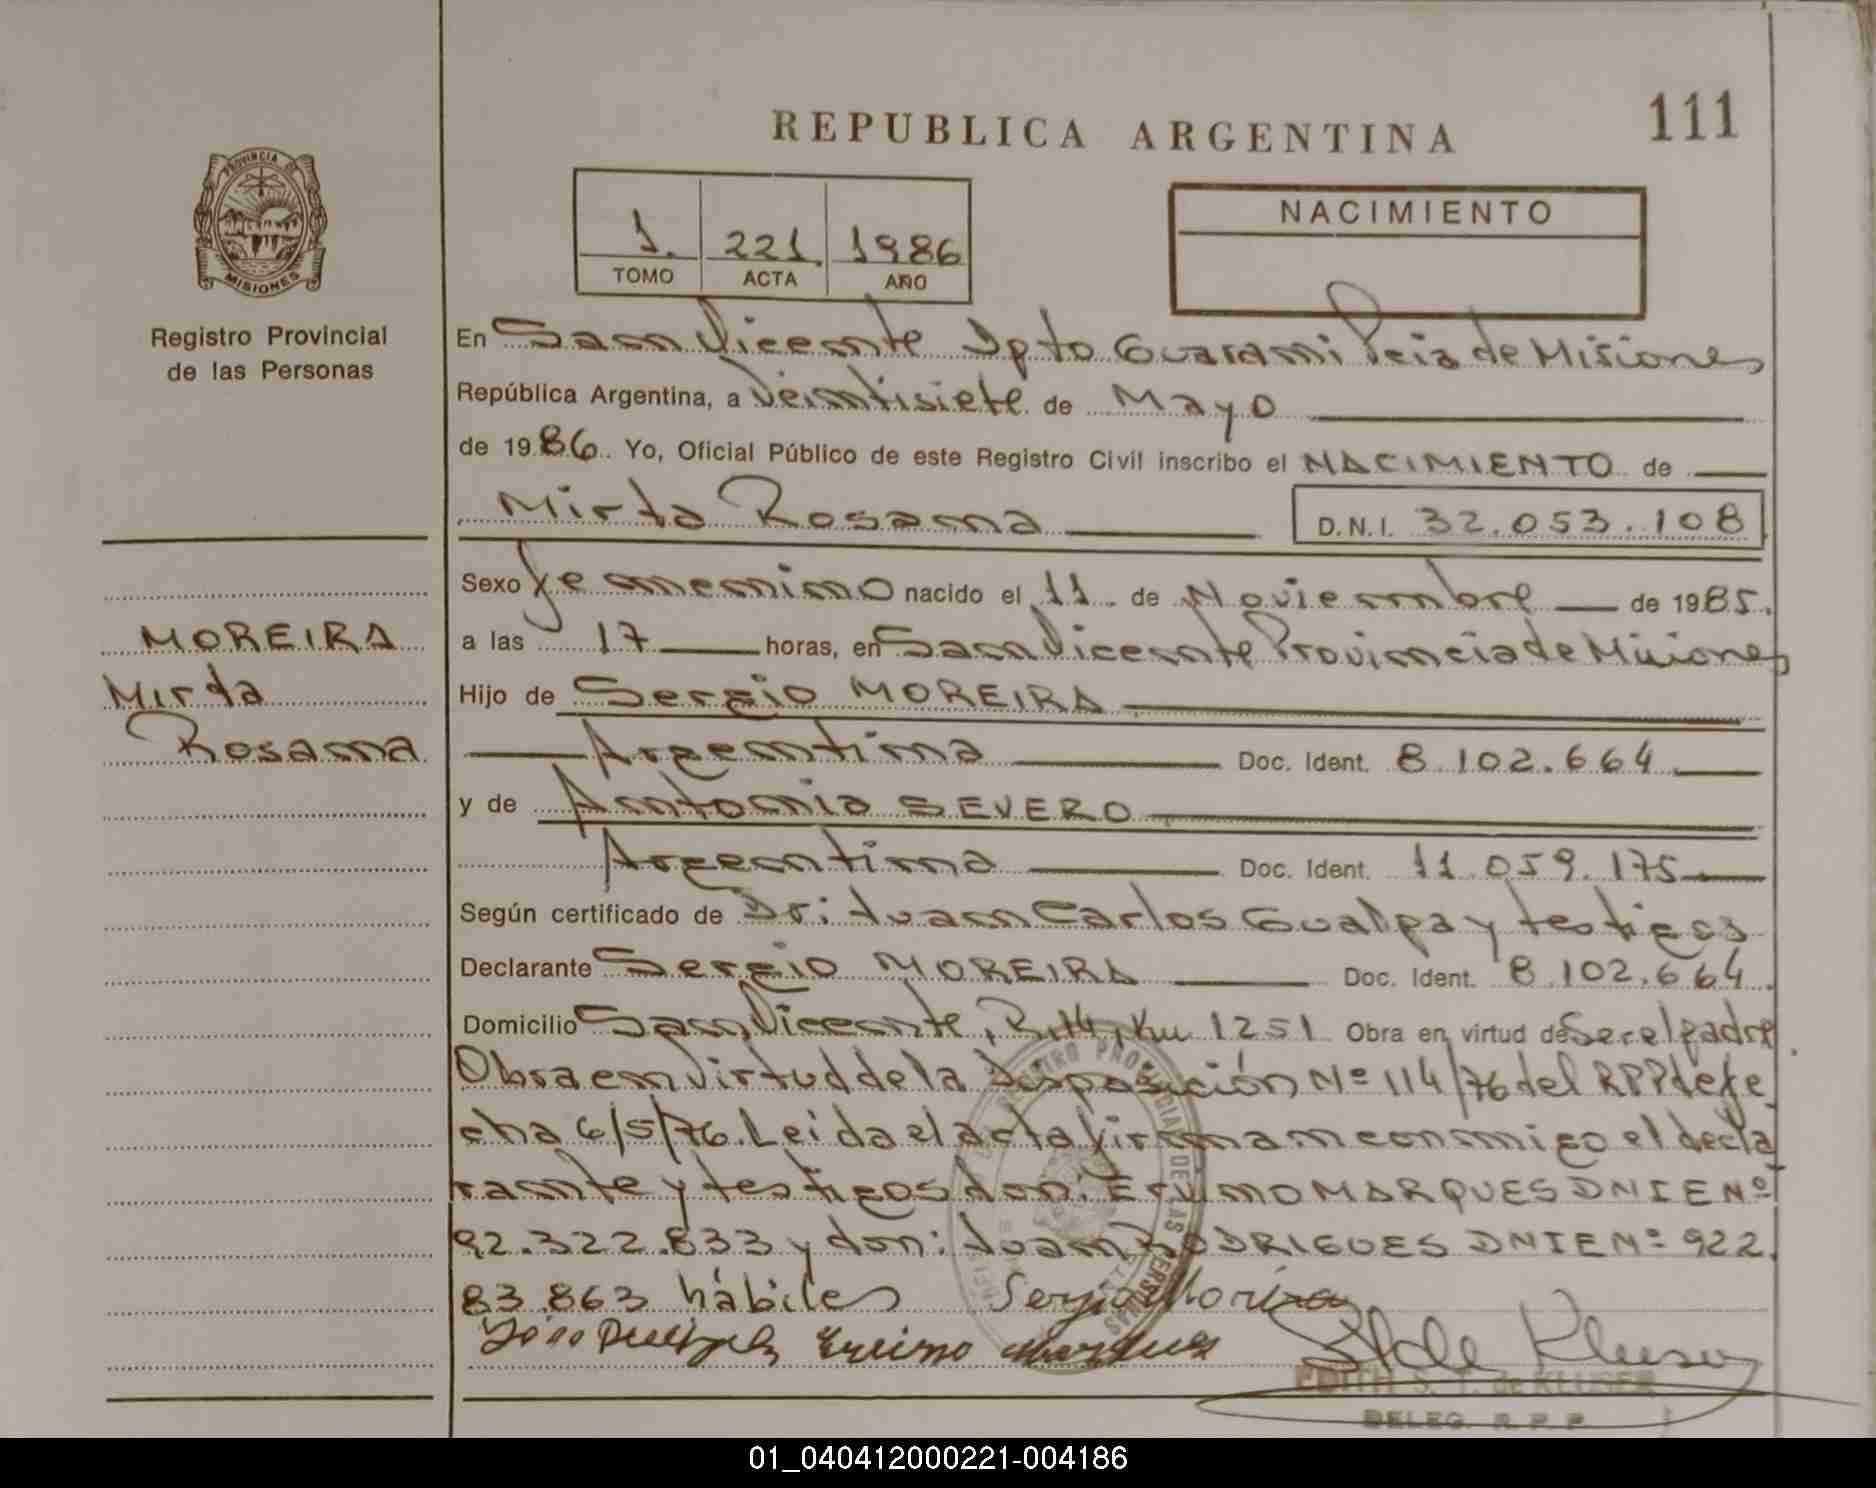 REPUBLICA ARGENTINA
111
PROVINCIA DE
MISIONES
Registro Provincial
de las Personas
1. 221. 1986
TOMO ACTA AÑO
NACIMIENTO
En San Vicente Dpto Guarani Pcia de Misiones
República Argentina, a Veintisiete de Mayo
de 1986. Yo, Oficial Público de este Registro Civil inscribo el NACIMIENTO de
Mirta Rosana D.N.I. 32.053.108
Sexo femenino nacido el 11 de Noviembre de 1985.
a las 17 horas, en San Vicente Provincia de Misiones
MOREIRA
Mirta
Rosana
Hijo de Sergio MOREIRA
Argentina Doc. Ident. 8.102.664
y de Antonia SEVERO
Argentina Doc. Ident. 11.059.175
Según certificado de Dr: Juan Carlos Gualpa y testigos
Declarante Sergio MOREIRA Doc. Ident. 8.102.664.
Domicilio San Vicente, R.14, Km 1251 Obra en virtud de Ser el padre
Obra en virtud de la Disposición Nº 114/76 del RPP de fe
cha 6/5/76. Leida el acta firman conmigo el decla
rante y testigos don: MARQUES DNIE Nº
92.322.833 y don: Juan RODRIGUES DNIE Nº 922
83.863 hábiles Sergio Moreira
EDITH S. T. de KLUSER
DELEG. R. P. P.
01_040412000221-004186